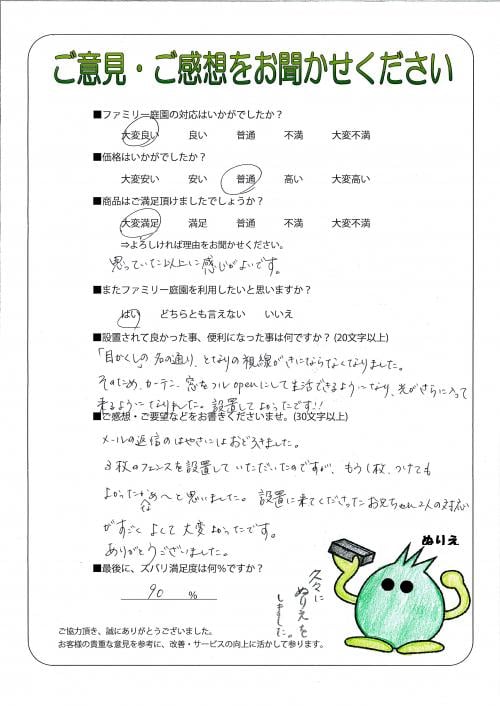 ご意見・ご感想をお聞かせください
■ファミリー庭園の対応はいかがでしたか？
大変良い 良い 普通 不満 大変不満
■価格はいかがでしたか？
大変安い 安い 普通 高い 大変高い
■商品はご満足頂けましたでしょうか？
大変満足 満足 普通 不満 大変不満
⇒よろしければ理由をお聞かせください。
思っていた以上に感じがよいです。
■またファミリー庭園を利用したいと思いますか？
はい どちらとも言えない いいえ
■設置されて良かった事、便利になった事は何ですか？(20文字以上)
「目かくし」の名の通り、となりの視線がきにならなくなりました。
そのため、カーテン、窓をフルopenにして生活できるようになり、光がさらに入って
来るようになりました。設置してよかったです!!
■ご感想・ご要望などをお書きくださいませ。(30文字以上)
メールの返信のはやさにはおどろきました。
3枚のフェンスを設置していただいたのですが、もう1枚、つけても
よかったかなぁ〜と思いました。設置に来てくださったお兄ちゃん2人の対応
がすごくよくて大変よかったです。
ありがとうございました。
■最後に、ズバリ満足度は何％ですか？
90 %
ぬりえ
久々に
ぬりえを
しました。
ご協力頂き、誠にありがとうございました。
お客様の貴重な意見を参考に、改善・サービスの向上に活かして参ります。